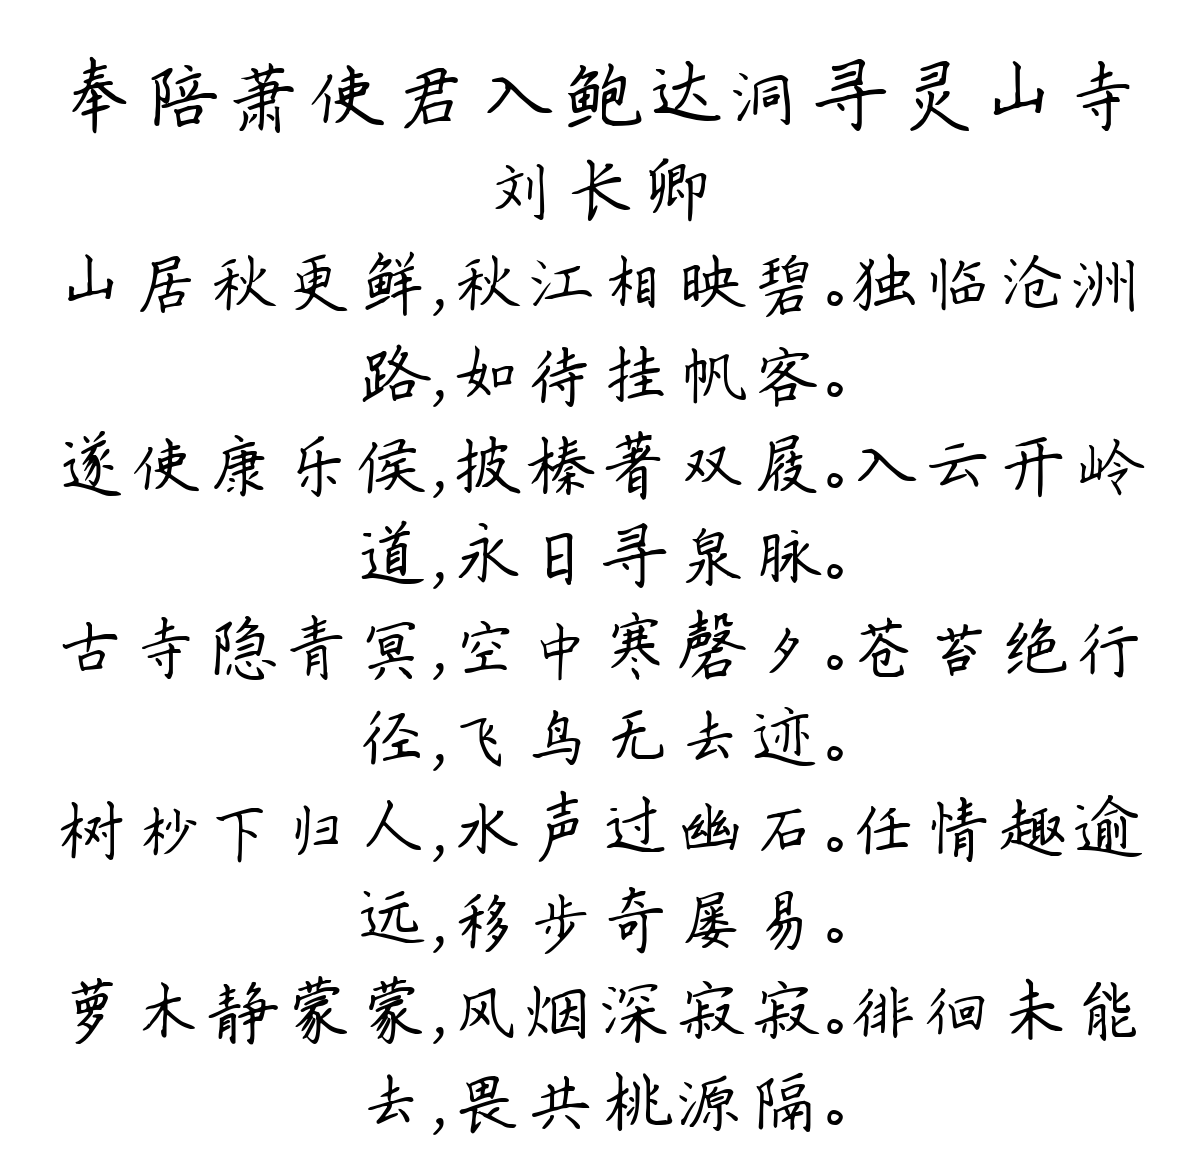 奉陪萧使君入鲍达洞寻灵山寺
刘长卿
山居秋更鲜,秋江相映碧。独临沧洲
路,如待挂帆客。
遂使康乐侯,披榛著双屐。入云开岭
道,永日寻泉脉。
古寺隐青冥,空中寒磬夕。苍苔绝行
径,飞鸟无去迹。
树杪下归人,水声过幽石。任情趣逾
远,移步奇屡易。
萝木静蒙蒙,风烟深寂寂。徘徊未能
去,畏共桃源隔。